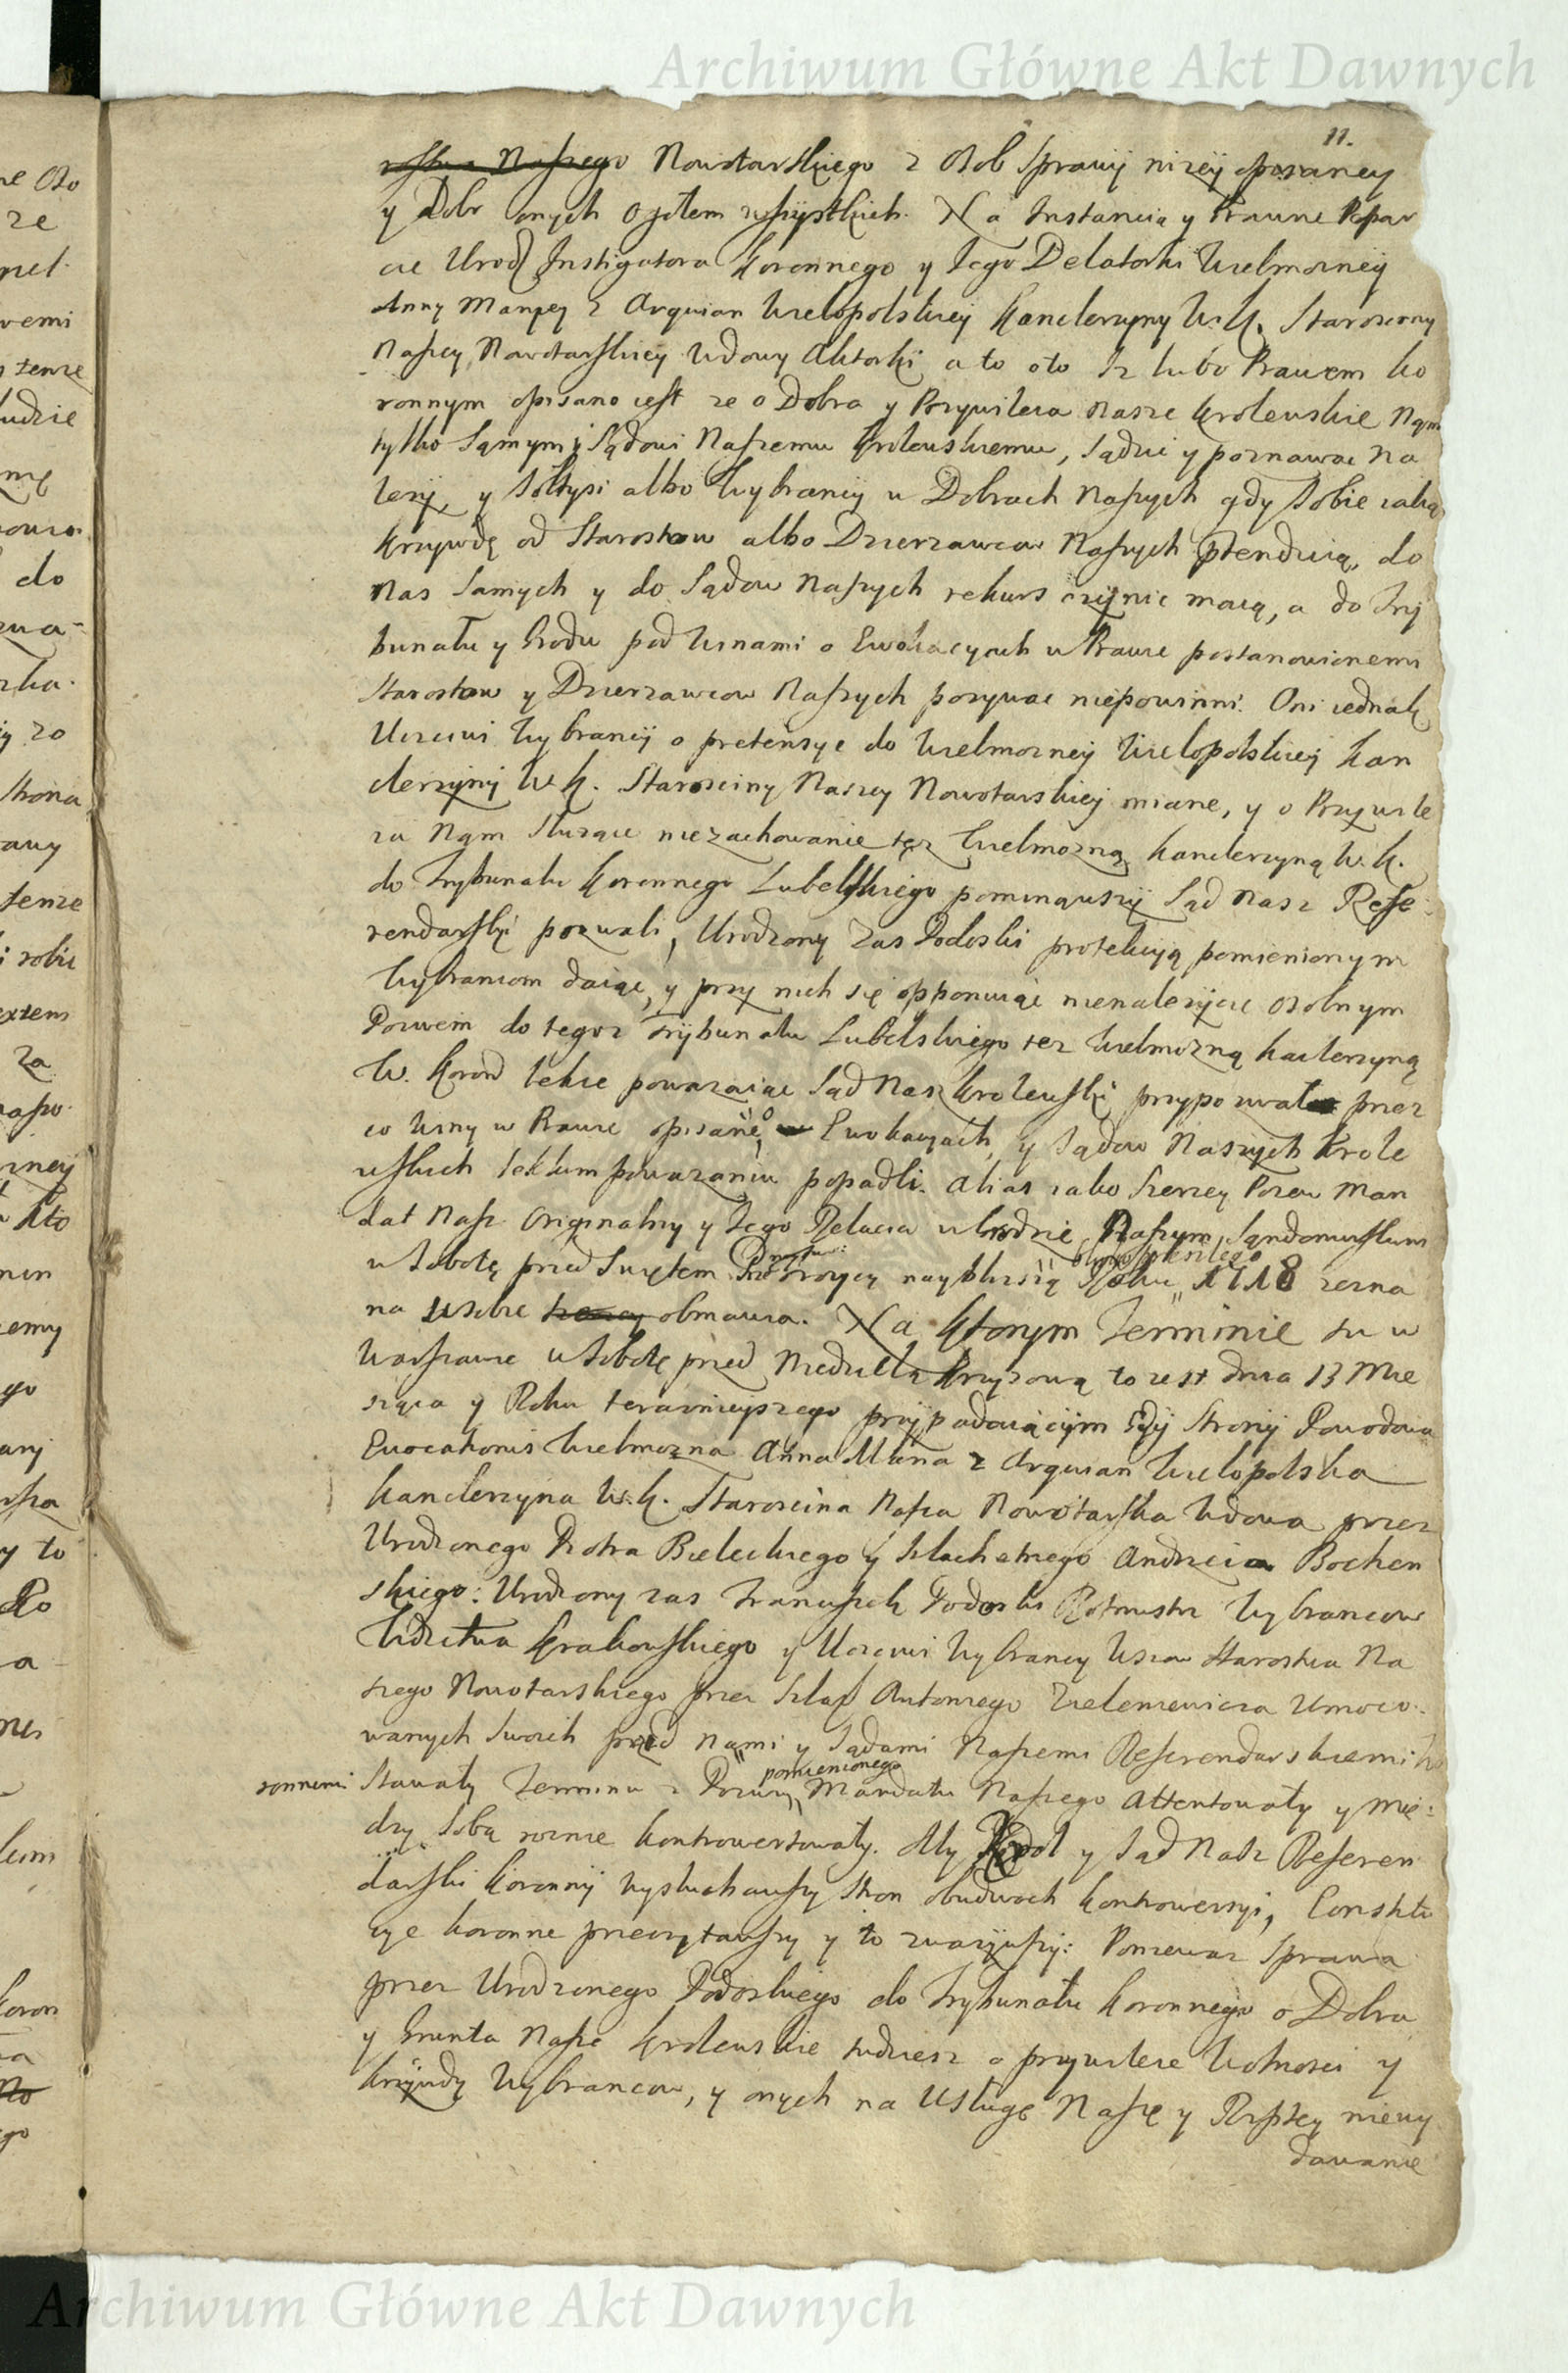 Archiwum Główne Akt Dawnych
11.
Naszego Nowotarskiego z Osob Sprawij nizeij opisaney
y Dobr onych ogołem wszystkich. Na Instancią y Prawne Popar
cie Urodz Instigatora Koronnego y Iego Delatorki Wielmozneij
Anny Maryey z Arquian Wielopolskiey Kanclerzyny W. K. Starosciny
Naszey Nowotarskiey Wdowy Aktorki a to oto Iz lubo Prawem ko
ronnym opisano iest ze o Dobra y Przywileia Nasze Krolewskie Nam
tylko Samym i Sądowi Naszemu Krolewskiemu, Sądzic y poznawac na
lezy, y Sołtysi albo Wybrancy w Dobrach Naszych gdy Sobie iaką
Krzywdę od Starostow albo Dzierzawcow Naszych ptenduią, do
nas Samych y do Sądow Naszych rekurs czijnic maią, a do Trij
bunału y Grodu pod Winami o Ewokacyach w Prawie postanowionemi
Starostow y Dzierzawcow Naszych pozywac niepowinni. Oni iednak
Uczciwi Wybrancij o pretensye do Wielmozneij Wielopolskiey Kan
clerzyny W. K. Starosciny Naszey Nowotarskiey miane, y o Przywile
ia Nam Słuzące niezachowanie tęz Wielmozną Kanclerzyną W. K.
do Trybunału Koronnego Lubelskiego pominąwszy Sąd Nasz Refe
rendarski pozwali, Urodzony zas Podoski protekcyą pomienionym
Wybrancom daiąc, y przy nich się opponuiąc nienalezycie osobnym
Pozwem do tegoz Trijbunału Lubelskiego tez Wielmozną Kanclerzyną
W. Koron lekce powazaiąc Sąd Nasz Krolewski przypozwał przez
co Winy w Prawie opisane o Ewokacyach, y Sądow Naszych Krole
wskich lekkim powazaniu popadli. Alias iako Szerzey Pozew Man
dat Nasz Originalny y Iego Relacia w Grodzie Naszym Sandomirskim
w Sobotę przed Swiętem Troycy naybliszą Roku blisko przeszłego 1718 zezna
na w sobie obmawia. Na Ktorym Terminie tu w
Warszawie w Sobotę przed Niedzielą Krzyzową to iest dnia 13 Mie
siąca y Roku teraznieyszego przijpadaiącijm Gdij Stronij Powodowa
Evocationis Wielmozna Anna Mana z Arquian Wielopolska
Kanclerzyna W. K. Starościna Nasza Nowotarska Wdowa przez
Urodzonego Piotra Bieleckiego y Szlachetnego Andrzeia Bochen
skiego: Urodzony zas Franciszek Podoski Rotmistrz Wybrancow
Wdztwa Krakowskiego y Uczciwi Wybrancy Wsiow Starostwa Na
szego Nowotarskiego przez Szlach Antoniego Zieleniewicza Umoco
wanych Swoich przed nami y Sądami Naszemi Referendarskiemi Ko
ronnemi Stawały Terminu z Pozwu pomienionego Mandatu Naszego Attentowały y mię
dzy Sobą roznie kontrowertowały. My Krol y Sąd Nasz Referen
darski Koronnij wysłuchawszy Stron obudwoch Kontrowersyi, Constitu
cye koronne przeczytawszy y to zwazijwszy: Poniewaz Sprawa
przez Urodzonego Podoskiego do Trybunału Koronnego o Dobra
y Grunta Nasze Krolewskie tudziesz o przywileie Wolnosci y
Krzijwdy Wybrancow, y onych na Usługę Naszę y Rzptey niewy
dawanie
Archiwum Główne Akt Dawnych